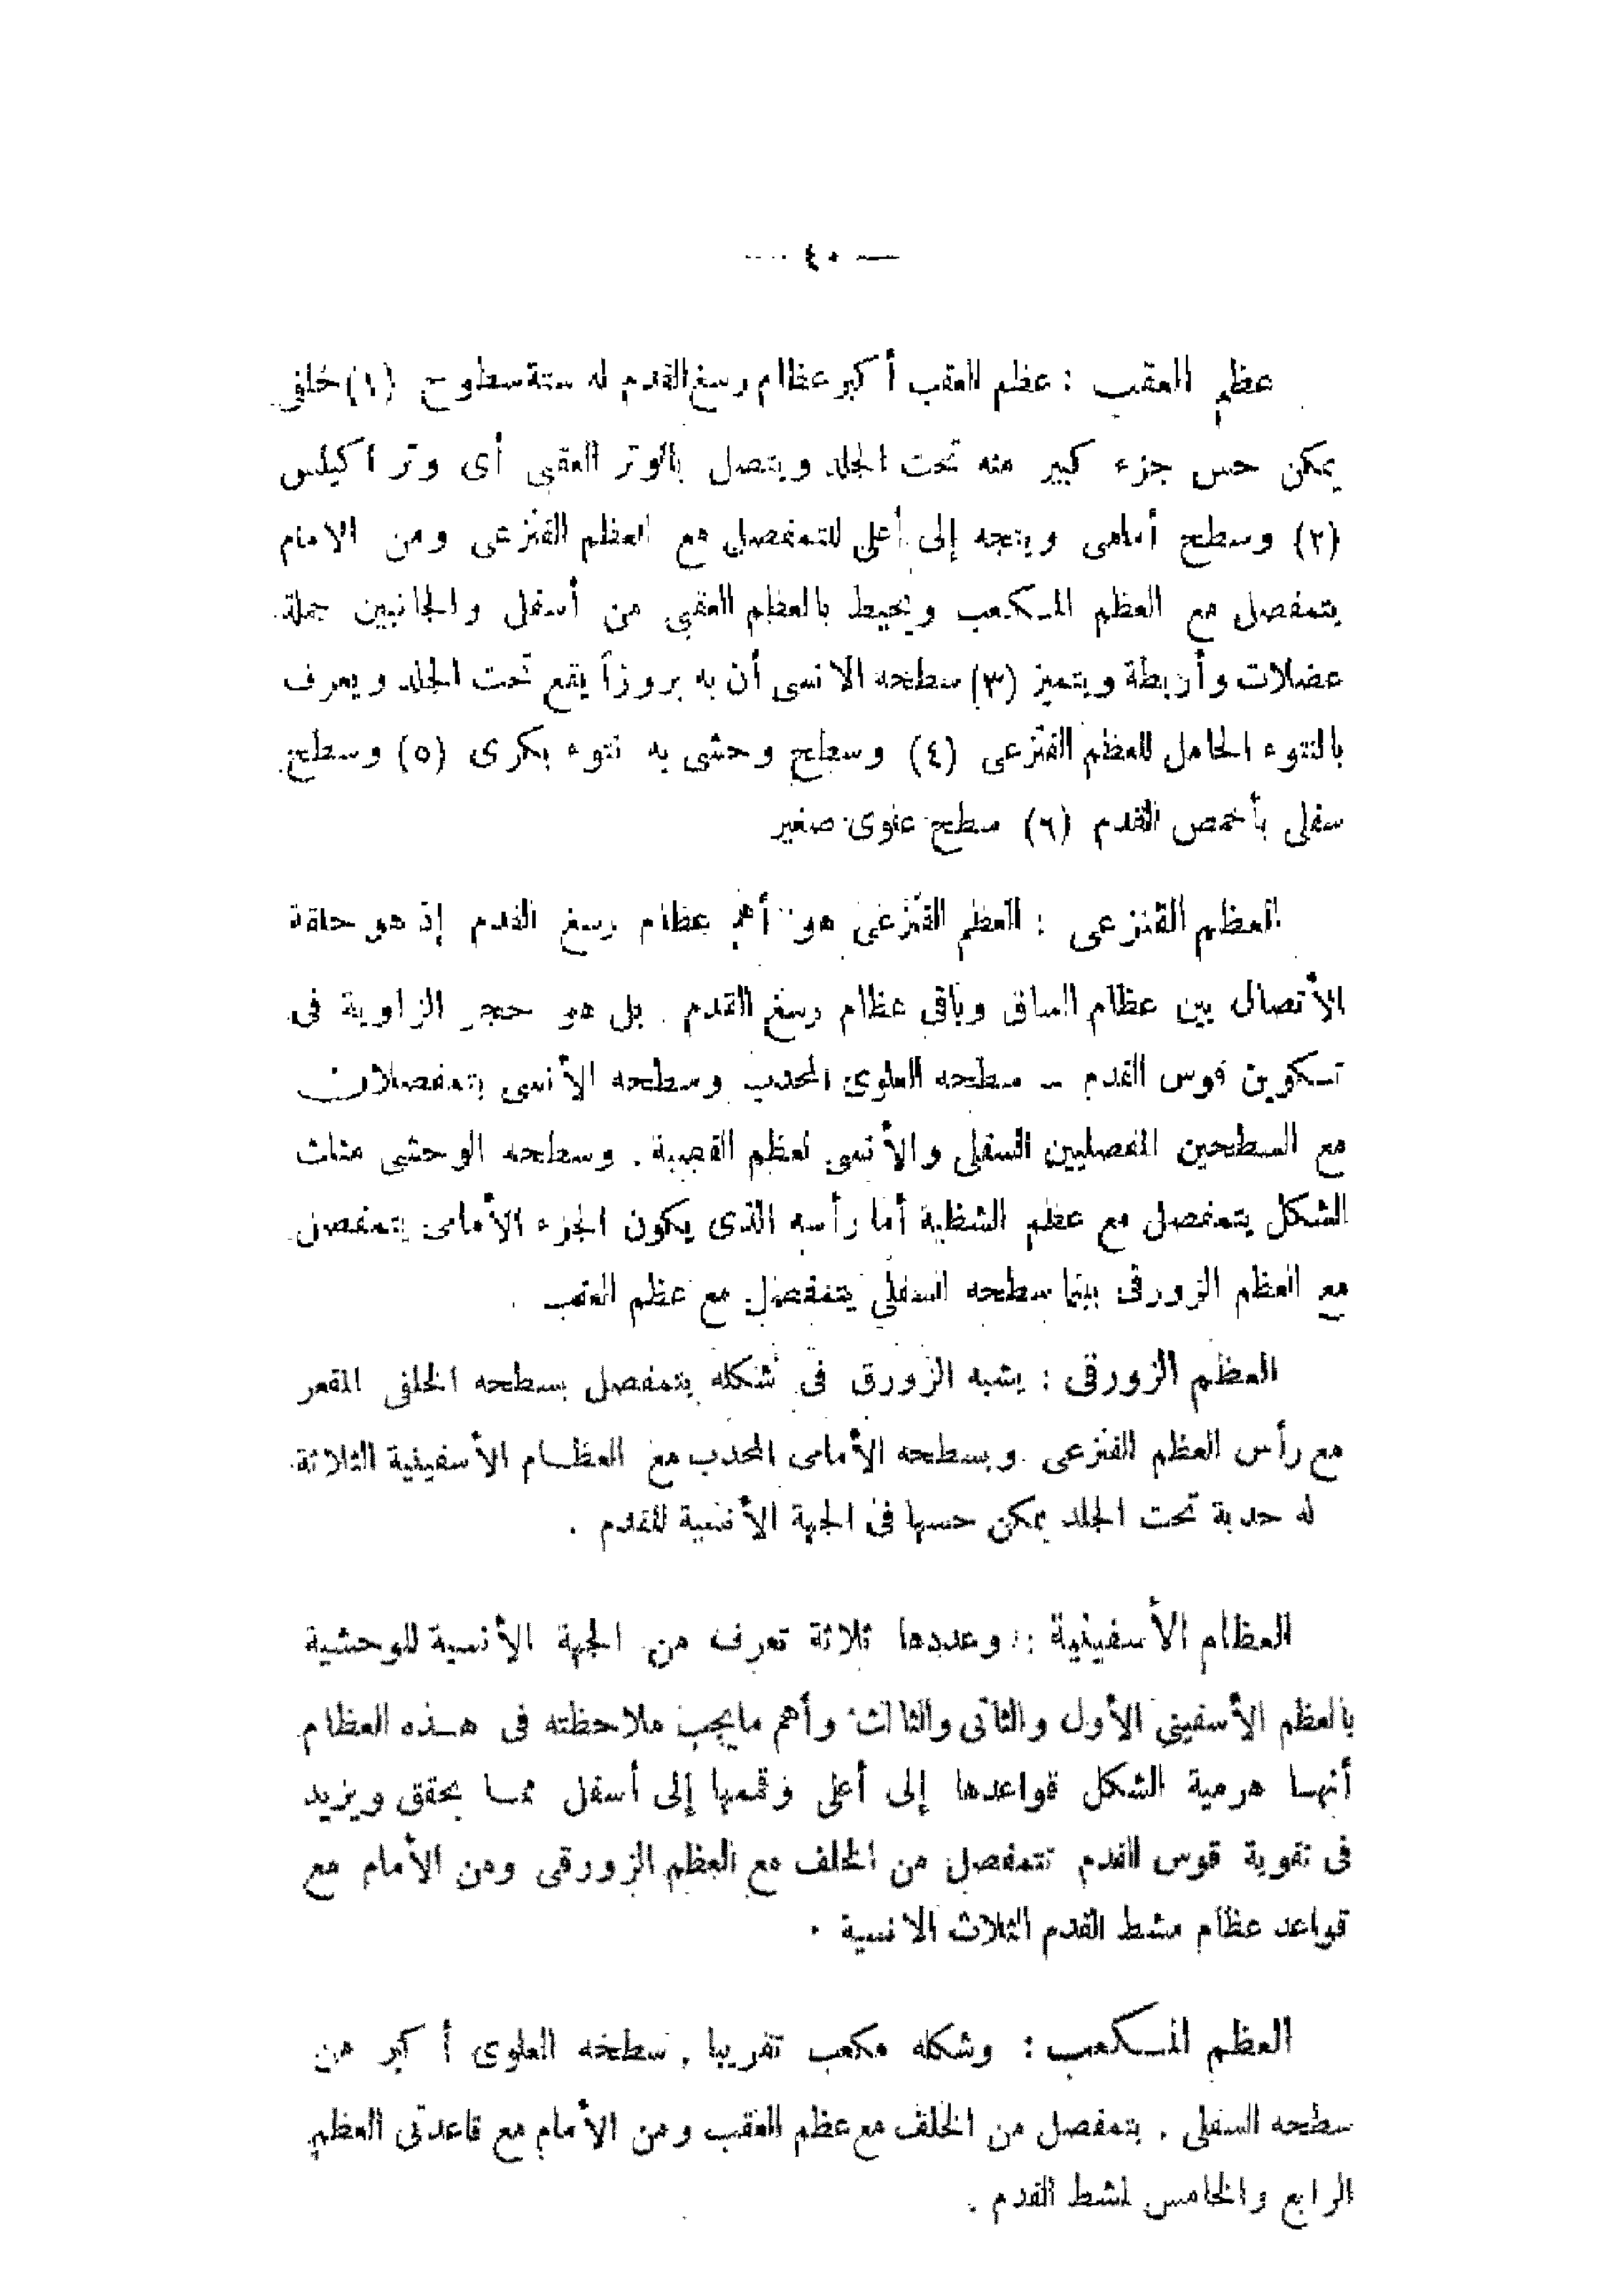 — ٤٠ —
عظم العقب : عظم العقب أكبر عظام رسغ القدم له ستة سطوح (١) خلفى
يمكن حس جزء كبير منه تحت الجلد ويتصل بالوتر العقبى أى وتر أكيلس
(٢) وسطح أمامى ويتجه إلى أعلى للتمفصل مع العظم القنزعى ومن الامام
يتمفصل مع العظم المكعب ويحيط بالعظم العقبى من أسفل والجانبين جملة
عضلات وأربطة ويتميز (٣) سطحه الانسى أن به بروزاً يقع تحت الجلد ويعرف
بالنتوء الحامل للعظم القنزعى (٤) وسطح وحشى به نتوء بكرى (٥) وسطح
سفلى بأخمص القدم (٦) سطح علوى صغير
العظم القنزعى : العظم القنزعى هو أهم عظام رسغ القدم إذ هو حلقة
الأتصال بين عظام الساق وباقى عظام رسغ القدم . بل هو حجر الزاوية فى
تكوين قوس القدم – سطحه العلوى المحدب وسطحه الأنسى يتمفصلان
مع السطحين المفصليين السفلى والأنسى لعظم القصبة . وسطحه الوحشى مثلث
الشكل يتمفصل مع عظم الشظية أما رأسه الذى يكون الجزء الأمامى يتمفصل
مع العظم الزورقى بينما سطحه السفلى يتمفصل مع عظم العقب .
العظم الزورقى : يشبه الزورق فى شكله يتمفصل بسطحه الخلفى المقعر
مع رأس العظم القنزعى وبسطحه الأمامى المحدب مع العظام الأسفينية الثلاثة
له حدبة تحت الجلد يمكن حسها فى الجهة الأنسية للقدم .
العظام الأسفينية : وعددها ثلاثة تعرف من الجهة الأنسية للوحشية
بالعظم الأسفينى الأول والثانى والثالث وأهم مايجب ملاحظته فى هذه العظام
أنها هرمية الشكل قواعدها إلى أعلى وقممها إلى أسفل مما يحقق ويزيد
فى تقوية قوس القدم تتمفصل من الخلف مع العظم الزورقى ومن الأمام مع
قواعد عظام مشط القدم الثلاث الانسية .
العظم المكعب : وشكله مكعب تقريبا . سطحه العلوى أكبر من
سطحه السفلى . يتمفصل من الخلف مع عظم العقب ومن الأمام مع قاعدتى العظم
الرابع والخامس لمشط القدم .